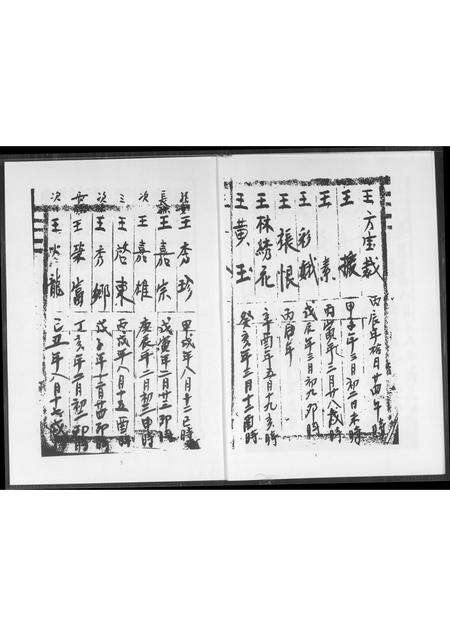 王方空裁 丙辰年拾月廿四午時
王 撥 甲子年三月初二日未時
王 素 丙寅年三月廿八戌時
王彩娥 戊辰年三月初九卯時
王張恨 丙酉年
王林綉花 辛酉年五月十九亥時
王黃玉 癸亥年三月十二酉時
王秀珍 甲戌年八月十二巳時
長 王嘉宗 戊寅年二月廿二卯時
次 王嘉雄 庚辰年二月初三申時
三 王啓東 丙戌年八月十五酉時
次 王秀鄉 戊子年二月廿四卯時
長 王榮富 丁亥年二月初二卯時
次 王炎龍 己丑年八月十七戌